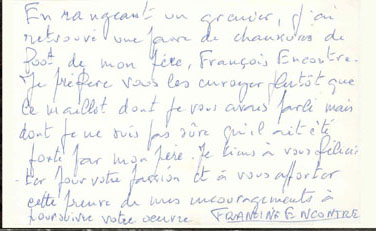 En rangeant un grenier, j'ai
retrouvé une paire de chaussures de
foot de mon père, François Encontre.
Je préfère vous les envoyer plutôt que
le maillot dont je vous avais parlé mais
dont je ne suis pas sûre qu'il ait été
porté par mon père. Je tiens à vous félici-
ter pour votre passion et à vous apporter
cette preuve de mes encouragements à
poursuivre votre oeuvre. FRANCINE ENCONTRE